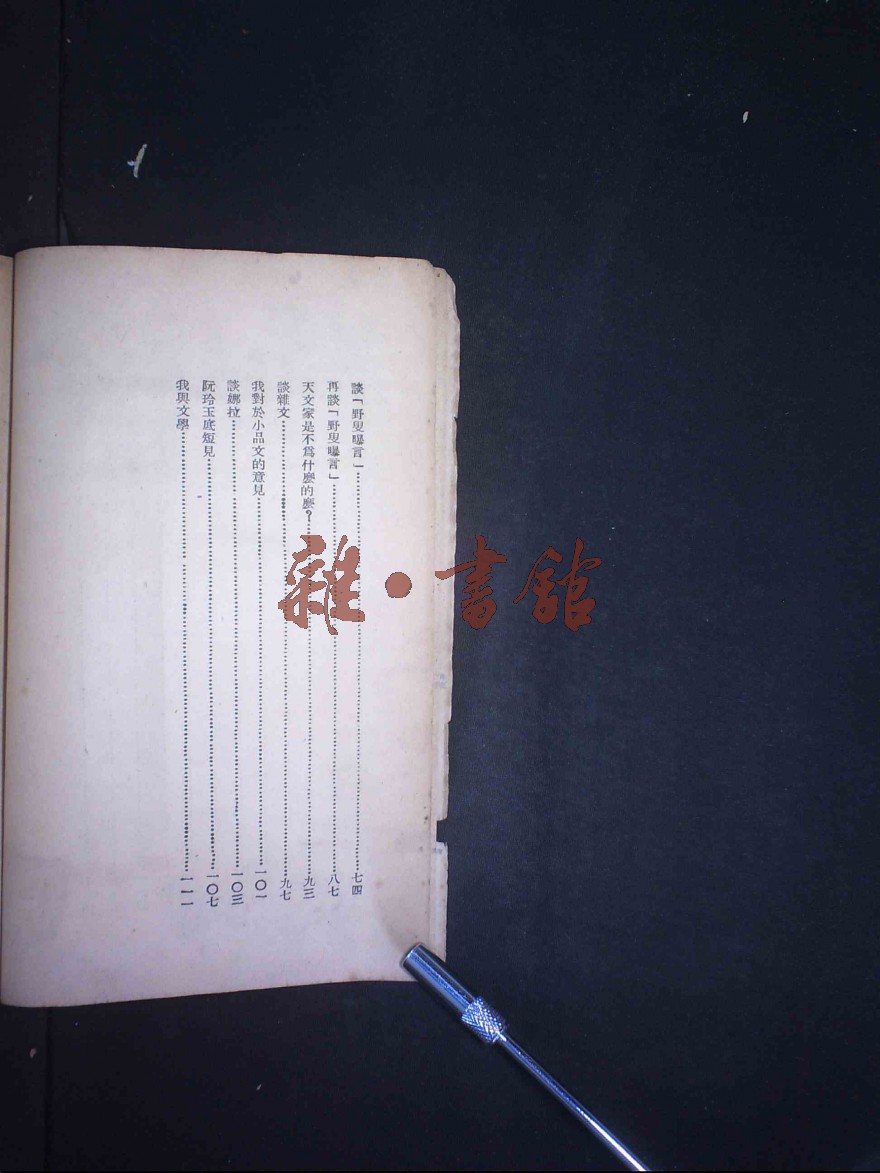 談「野叟曝言」…………七四
再談「野叟曝言」…………八七
天文家是不爲什麽的麽?…………九三
談雜文…………九七
我對於小品文的意見…………一〇一
談娜拉…………一〇三
阮玲玉底短見…………一〇七
我與文學…………一一一
雜·書館